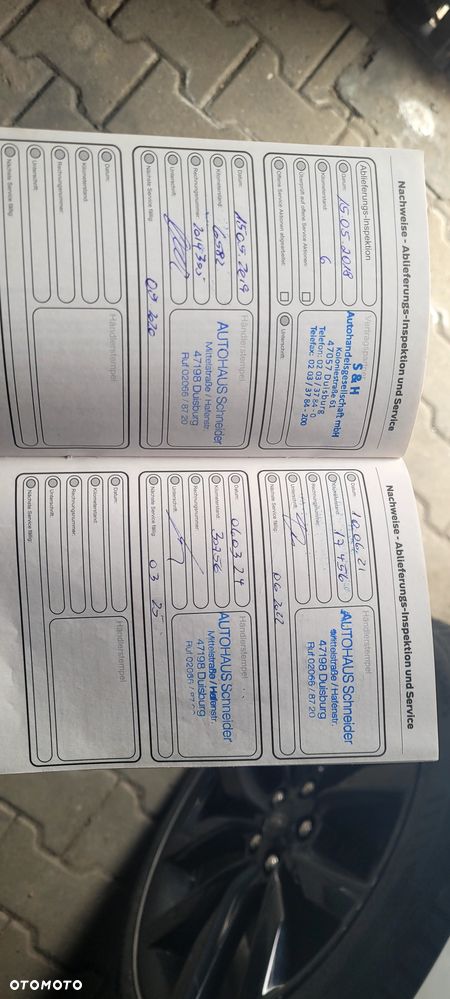 Nachweise - Ablieferungs-Inspektion und Service
Ablieferungs-Inspektion
Datum: 15.05.2018
Kilometerstand: 6
Überprüft auf offene Service Aktionen:
Offene Service Aktionen abgearbeitet:
Vertragspartner
S & H
Autohandelsgesellschaft mbH
Koloniestraße 61
47057 Duisburg
Telefon: 02 03 / 37 84 - 0
Telefax: 02 03 / 37 84 - 200
Unterschrift:
Datum: 15.05.2019
Kilometerstand: 6582
Rechnungsnummer:
Unterschrift:
Nächste Service fällig:
Händlerstempel
AUTOHAUS Schneider
Mittelstraße / Hafenstr.
47198 Duisburg
Ruf 02066 / 87 20
Datum:
Kilometerstand:
Rechnungsnummer:
Unterschrift:
Nächste Service fällig:
Händlerstempel
Nachweise - Ablieferungs-Inspektion und Service
Datum: 10.06.21
Kilometerstand: 17 456
Rechnungsnummer:
Unterschrift:
Nächste Service fällig: 06 2022
Händlerstempel
AUTOHAUS Schneider
Mittelstraße / Hafenstr.
47198 Duisburg
Ruf 02066 / 87 20
Datum:
Kilometerstand: 30756
Rechnungsnummer:
Unterschrift:
Nächste Service fällig: 03 25
Händlerstempel
AUTOHAUS Schneider
Mittelstraße / Hafenstr.
47198 Duisburg
Ruf 02066 /
Datum:
Kilometerstand:
Rechnungsnummer:
Unterschrift:
Nächste Service fällig:
Händlerstempel
OTOMOTO